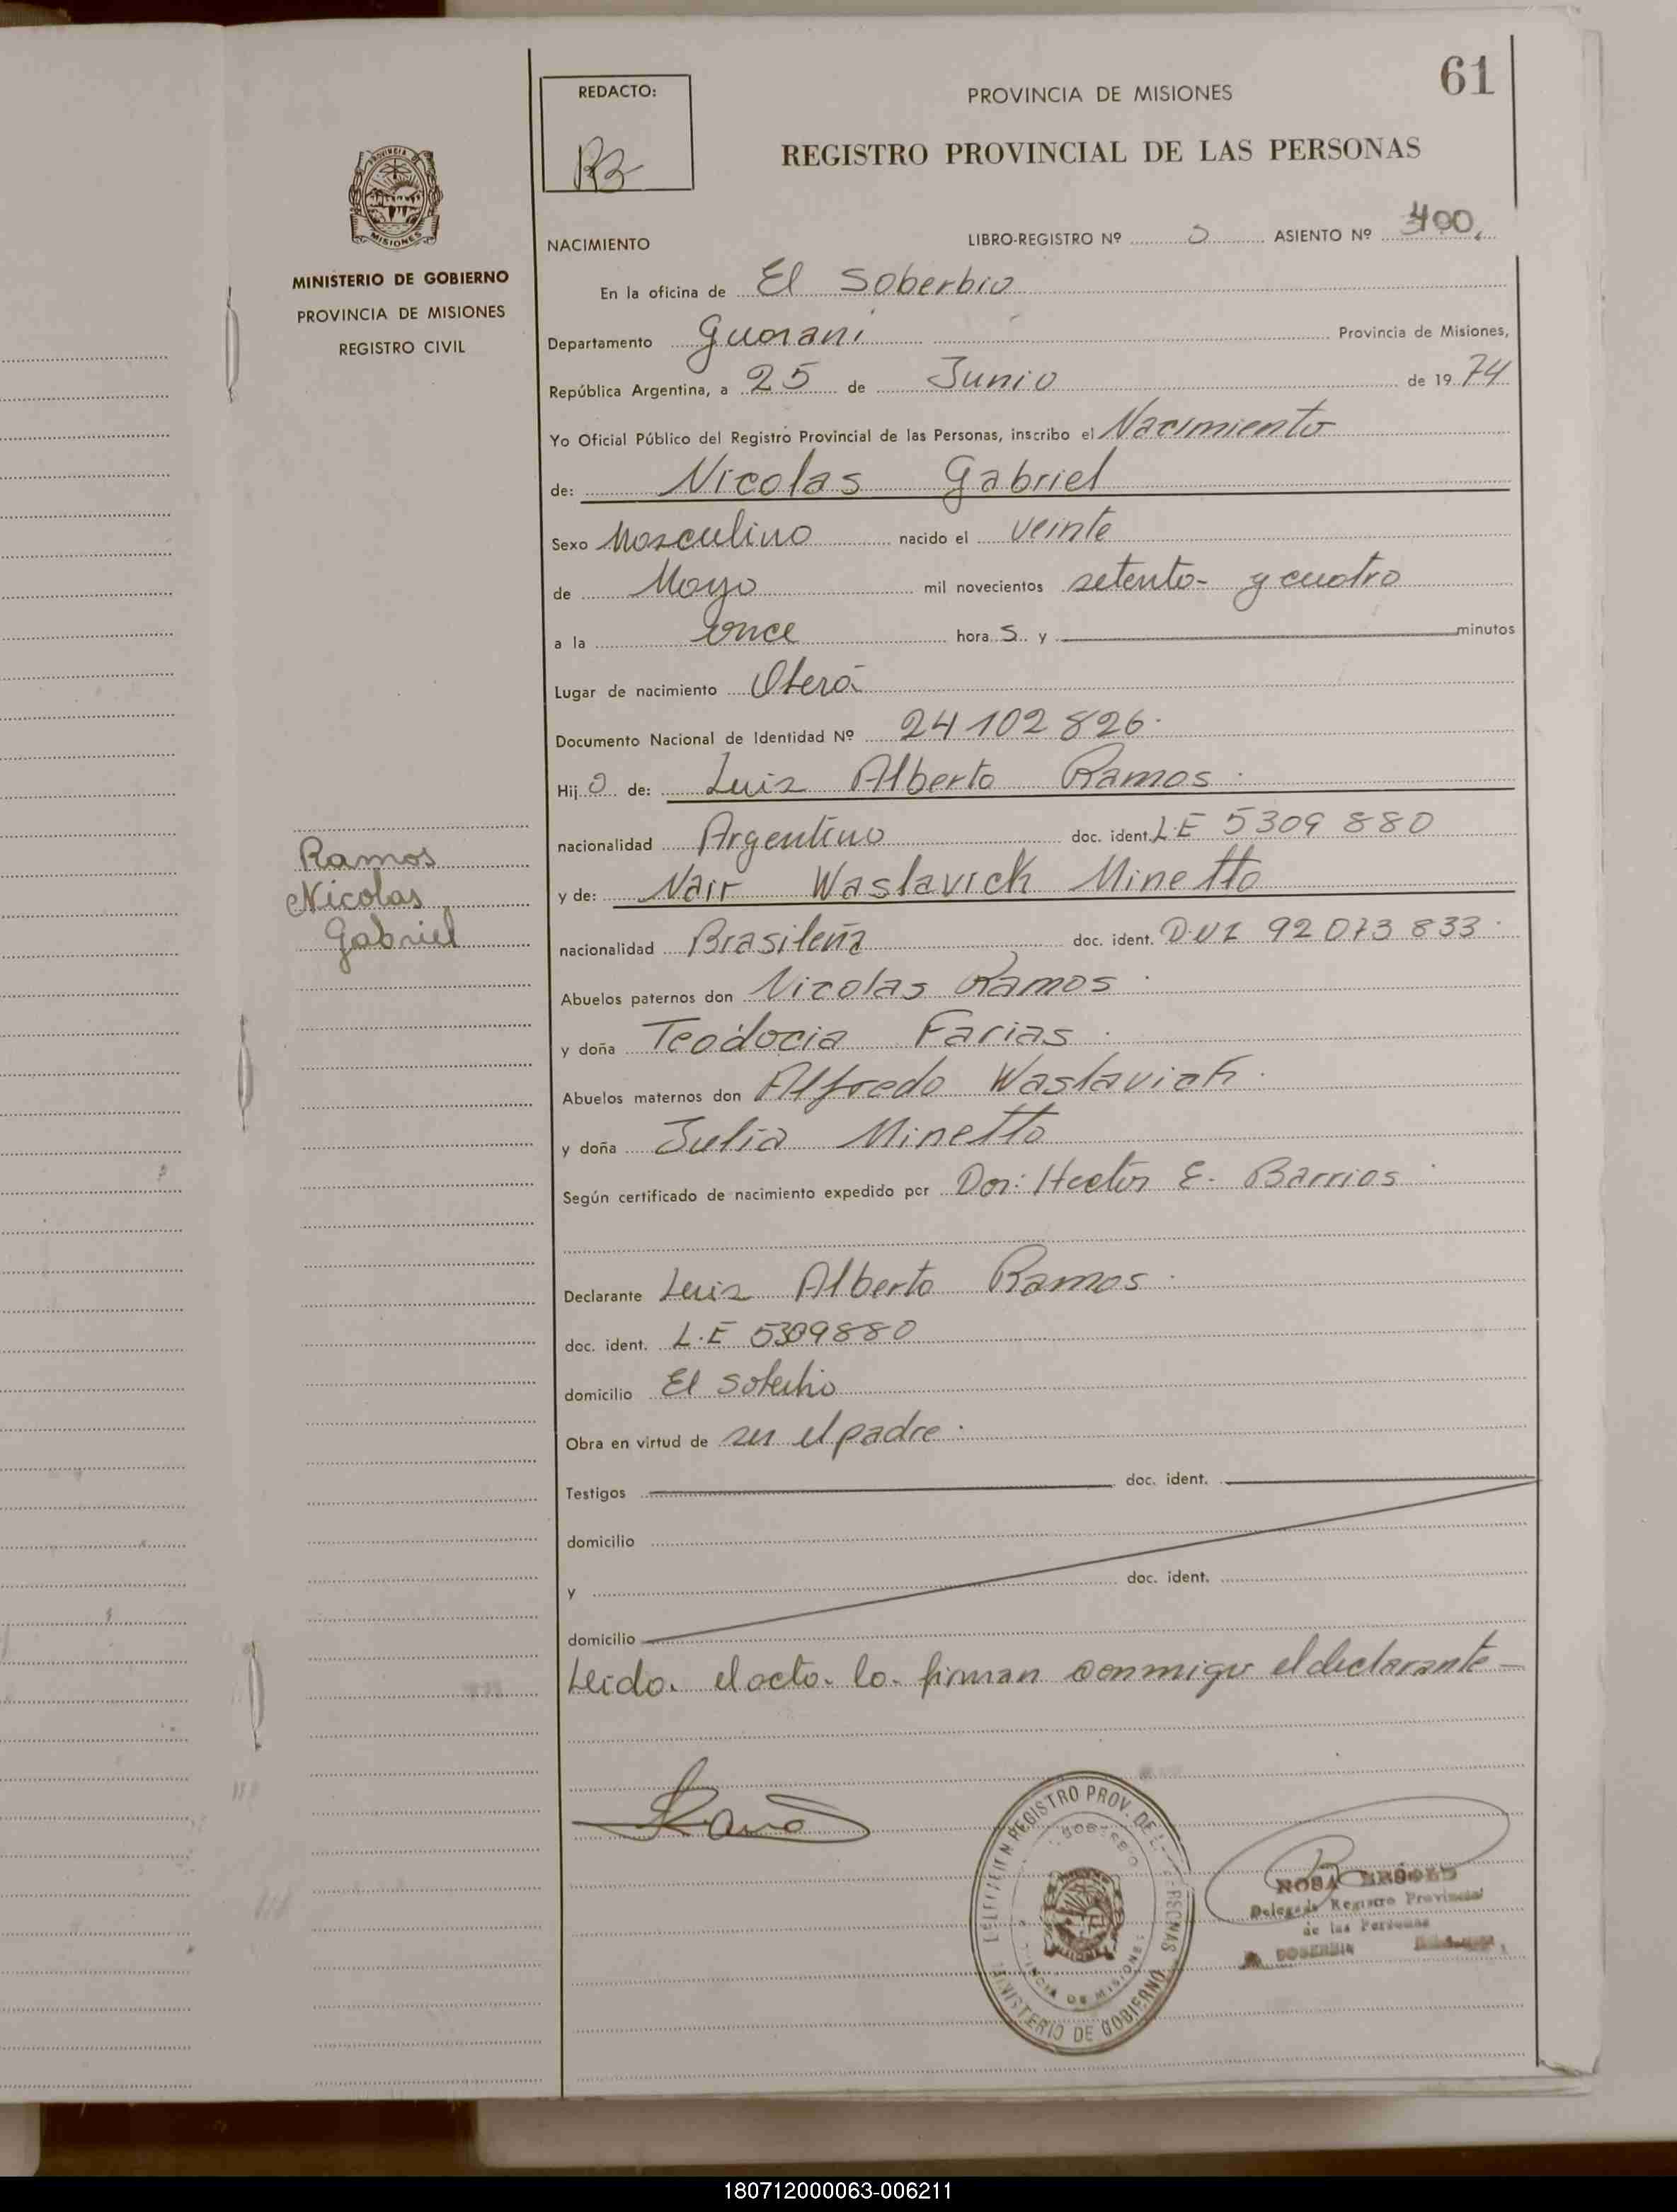 61
REDACTO:
PROVINCIA DE MISIONES
REGISTRO PROVINCIAL DE LAS PERSONAS
MISIONES
MINISTERIO DE GOBIERNO
PROVINCIA DE MISIONES
REGISTRO CIVIL
NACIMIENTO
LIBRO-REGISTRO Nº ASIENTO Nº 400
En la oficina de El Soberbio
Departamento Guarani Provincia de Misiones,
República Argentina, a 25 de Junio de 19 74
Yo Oficial Público del Registro Provincial de las Personas, inscribo el Nacimiento
de: Nicolas Gabriel
Sexo Masculino nacido el veinte
de Mayo mil novecientos setenta y cuatro
a la once hora s y minutos
Lugar de nacimiento Oberá
Documento Nacional de Identidad Nº 24102826
Hij o de: Luis Alberto Ramos
nacionalidad Argentino doc. ident. L.E 5309880
y de: Nair Waslavick Minetto
nacionalidad Brasileña doc. ident. D.N.I 92 073 833
Ramos
Nicolas
Gabriel
Abuelos paternos don Nicolas Ramos
y doña Teodocia Farias
Abuelos maternos don Alfredo Waslavich
y doña Julia Minetto
Según certificado de nacimiento expedido por Dor: Hector E. Barrios
Declarante Luis Alberto Ramos
doc. ident. L.E 5309880
domicilio El Soberbio
Obra en virtud de ser el padre
Testigos doc. ident.
domicilio
y doc. ident.
domicilio
Leida el acta lo firman conmigo el declarante
REGISTRO PROV. DE
MINISTERIO DE GOBIERNO
ROSA
Delegada Registro Provincial
de las Personas
180712000063-006211